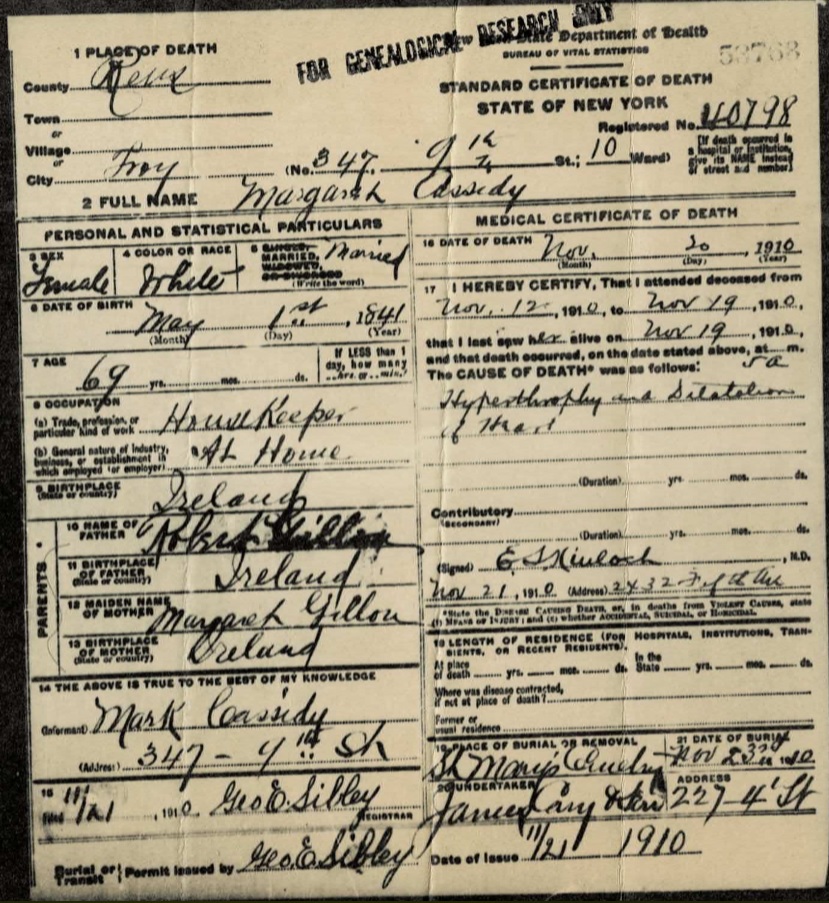 FOR GENEALOGICAL RESEARCH ONLY
State Department of Health
BUREAU OF VITAL STATISTICS
53768
STANDARD CERTIFICATE OF DEATH
STATE OF NEW YORK
Registered No. 40798
[If death occurred in a hospital or institution, give its NAME instead of street and number]
1 PLACE OF DEATH
County Renss
Town
or
Village
or
City Troy (No. 347 9th St.; 10 Ward)
2 FULL NAME Margaret Cassidy
PERSONAL AND STATISTICAL PARTICULARS
3 SEX
Female
4 COLOR OR RACE
White
5 SINGLE,
MARRIED,
WIDOWED,
OR DIVORCED
(Write the word)
Married
6 DATE OF BIRTH
May 1st, 1841
(Month) (Day) (Year)
7 AGE
69 yrs. mos. ds.
If LESS than 1
day, how many
hrs. or min.?
8 OCCUPATION
(a) Trade, profession, or
particular kind of work
HouseKeeper
(b) General nature of industry,
business, or establishment in
which employed (or employer)
At Home
9 BIRTHPLACE
(State or country)
Ireland
PARENTS
10 NAME OF
FATHER
Robert
11 BIRTHPLACE
OF FATHER
(State or country)
Ireland
12 MAIDEN NAME
OF MOTHER
Margaret Gillon
13 BIRTHPLACE
OF MOTHER
(State or country)
Ireland
14 THE ABOVE IS TRUE TO THE BEST OF MY KNOWLEDGE
(Informant) Mark Cassidy
(Address) 347 - 9th St
15
Filed 11/21, 1910 Geo E. Sibley
REGISTRAR
MEDICAL CERTIFICATE OF DEATH
16 DATE OF DEATH Nov. 20 1910
(Month) (Day) (Year)
17 I HEREBY CERTIFY, That I attended deceased from
Nov. 12, 1910, to Nov 19, 1910,
that I last saw her alive on Nov 19, 1910,
and that death occurred, on the date stated above, at 5 a m.
The CAUSE OF DEATH* was as follows:
Hyperthrophy and Dilatation
of Heart
(Duration) yrs. mos. ds.
Contributory
(SECONDARY)
(Duration) yrs. mos. ds.
(Signed) E S Kinloch, M.D.
Nov 21, 1910 (Address) 2432 Fifth Ave
*State the DISEASE CAUSING DEATH, or, in deaths from VIOLENT CAUSES, state
(1) MEANS OF INJURY; and (2) whether ACCIDENTAL, SUICIDAL, or HOMICIDAL.
18 LENGTH OF RESIDENCE (FOR HOSPITALS, INSTITUTIONS, TRAN-
SIENTS, OR RECENT RESIDENTS).
At place
of death yrs. mos. ds.
In the
State yrs. mos. ds.
Where was disease contracted,
if not at place of death?
Former or
usual residence
19 PLACE OF BURIAL OR REMOVAL
St Mary's
21 DATE OF BURIAL
Nov 23rd 1910
20 UNDERTAKER
James & Son
ADDRESS
227-4 St
Burial or
Transit
Permit issued by Geo E. Sibley Date of Issue 11/21 1910